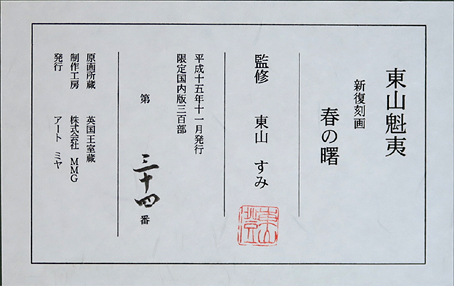 東山魁夷
新復刻画
春の曙
監修 東山 すみ
平成十五年十一月発行
限定国内版三百部
第 三十四 番
原画所蔵 英国王室蔵
制作工房 株式会社 MMG
発行 アート ミヤ